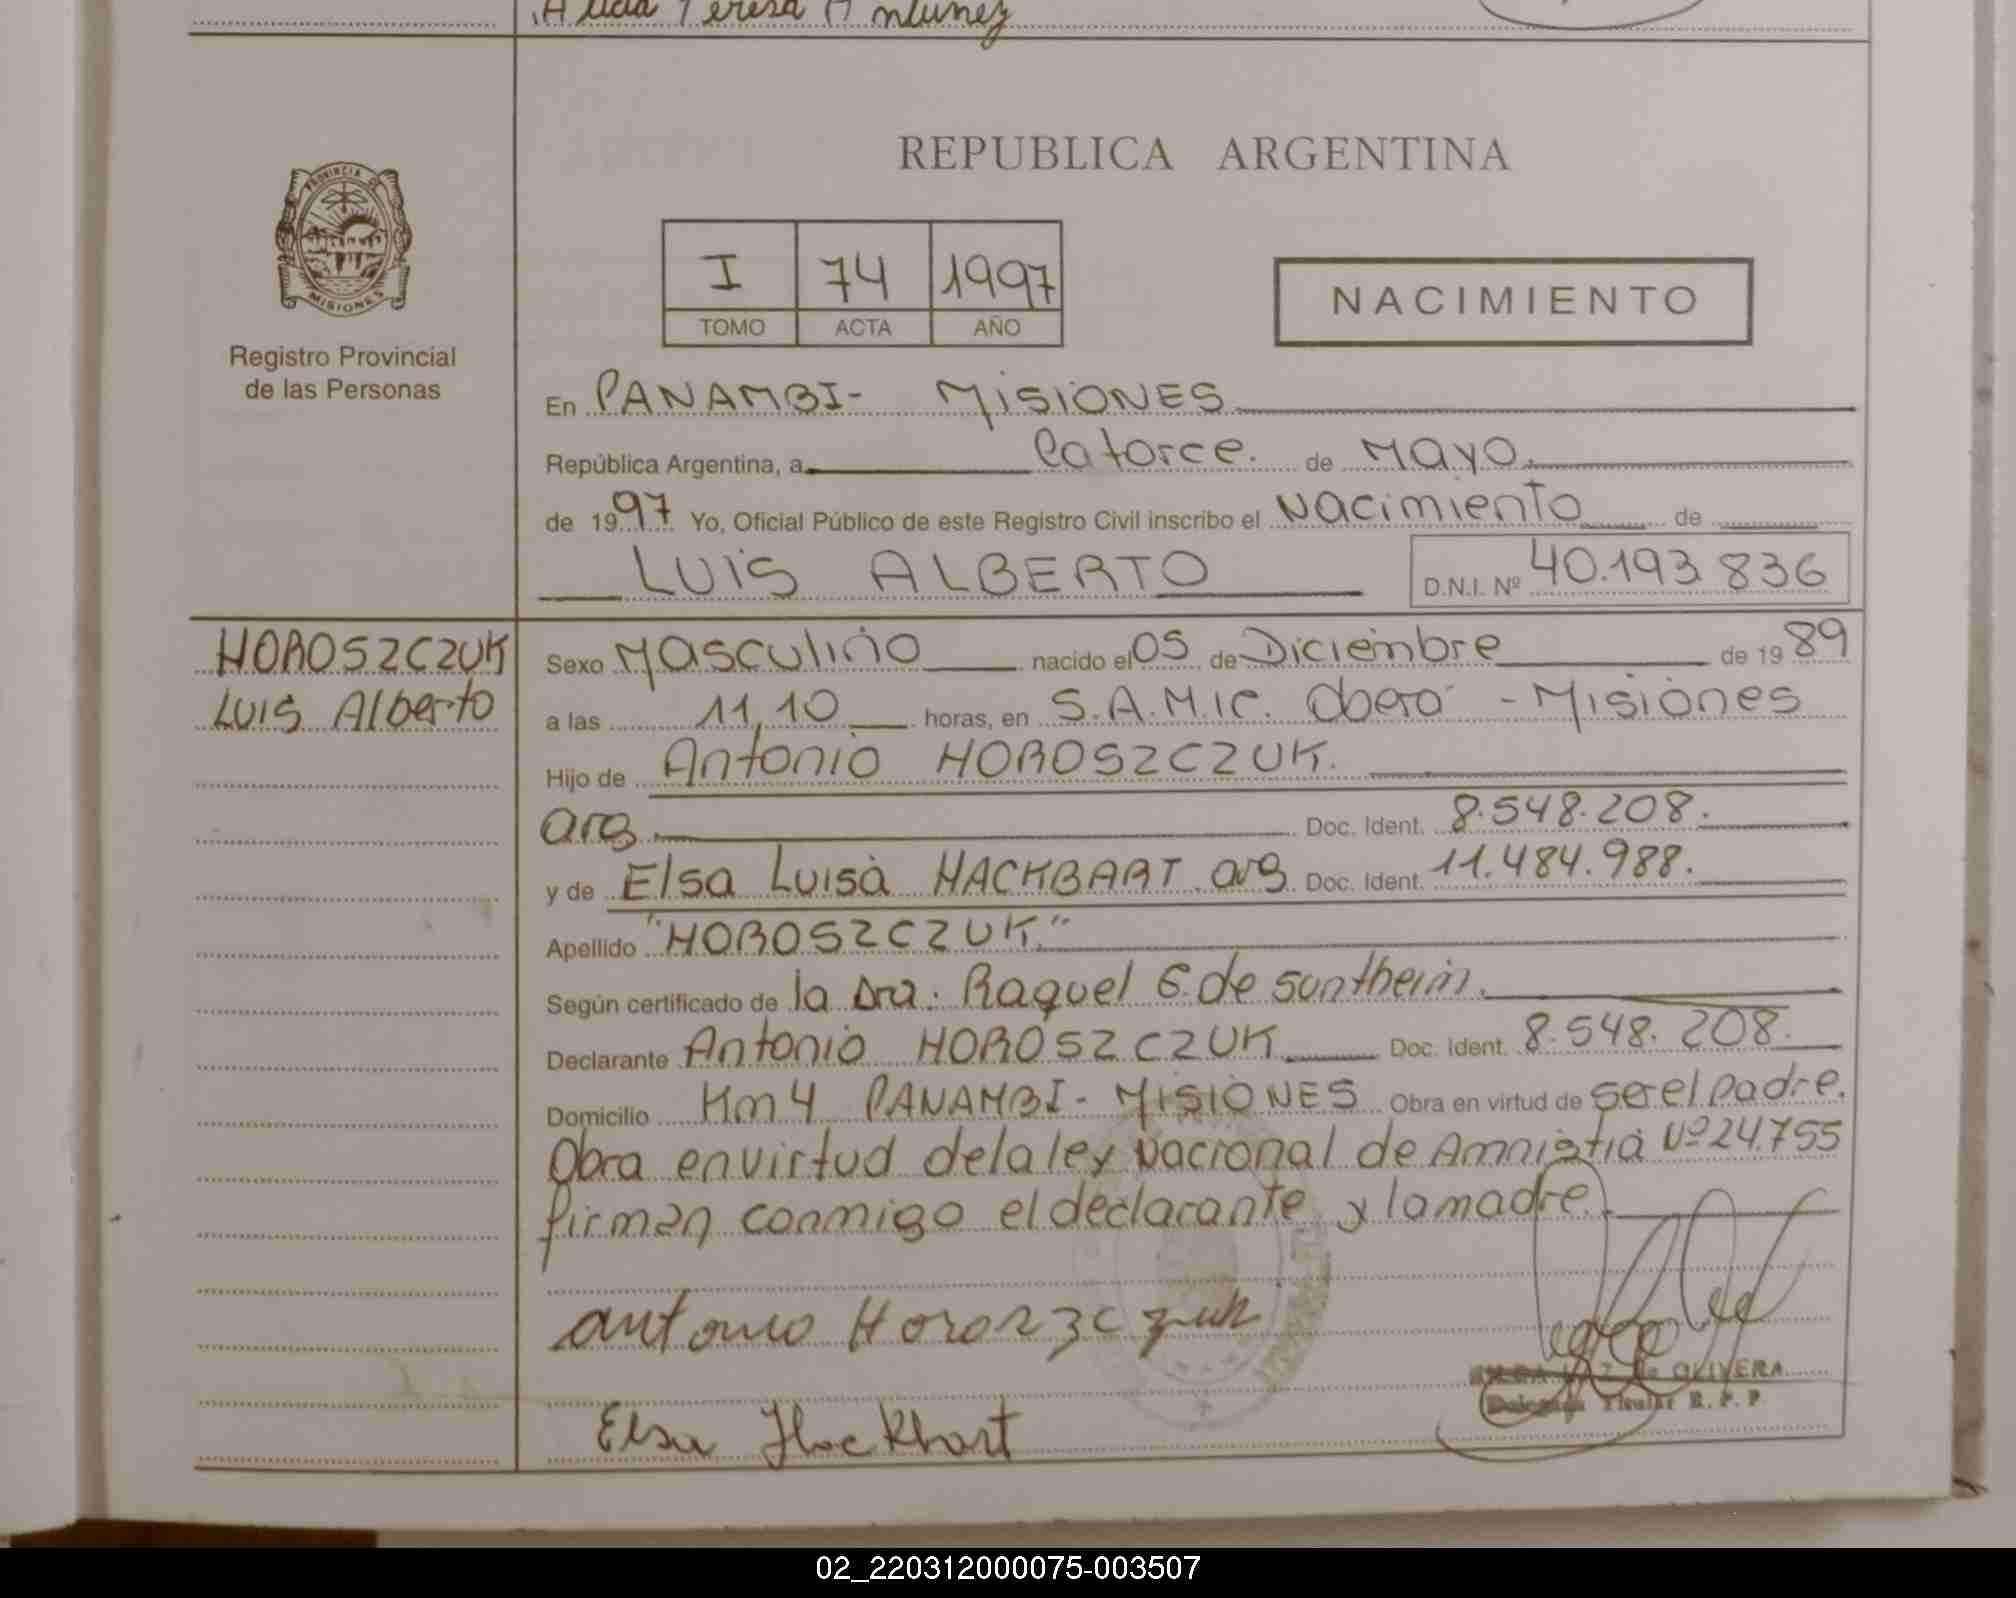 Alicia Teresa Antunez
PROVINCIA DE
MISIONES
Registro Provincial
de las Personas
REPUBLICA ARGENTINA
I 74 1997
TOMO ACTA AÑO
NACIMIENTO
En PANAMBI- MISIONES
República Argentina, a Catorce. de MAYO.
de 1997 Yo, Oficial Público de este Registro Civil inscribo el Nacimiento de
LUIS ALBERTO D.N.I. Nº 40.193.836
HOROSZCZUK
Luis Alberto
Sexo Masculino nacido el 05 de Diciembre de 1989
a las 11,10 horas, en S.A.M.IC. Oberá - Misiones
Hijo de Antonio HOROSZCZUK.
arg. Doc. Ident. 8.548.208.
y de Elsa Luisa HACKBART. arg Doc. Ident. 11.484.988.
Apellido "HOROSZCZUK."
Según certificado de la Dra. Raquel G. de Suntheim.
Declarante Antonio HOROSZCZUK Doc. Ident. 8.548.208.
Domicilio Km 4 PANAMBI- MISIONES Obra en virtud de ser el padre.
Obra en virtud de la ley Nacional de Amnistia Nº 24.755
firman conmigo el declarante y la madre.
Antonio Horoszczuk
de OLIVERA
Delegada Titular R. P. P.
Elsa Hackbart
02_220312000075-003507